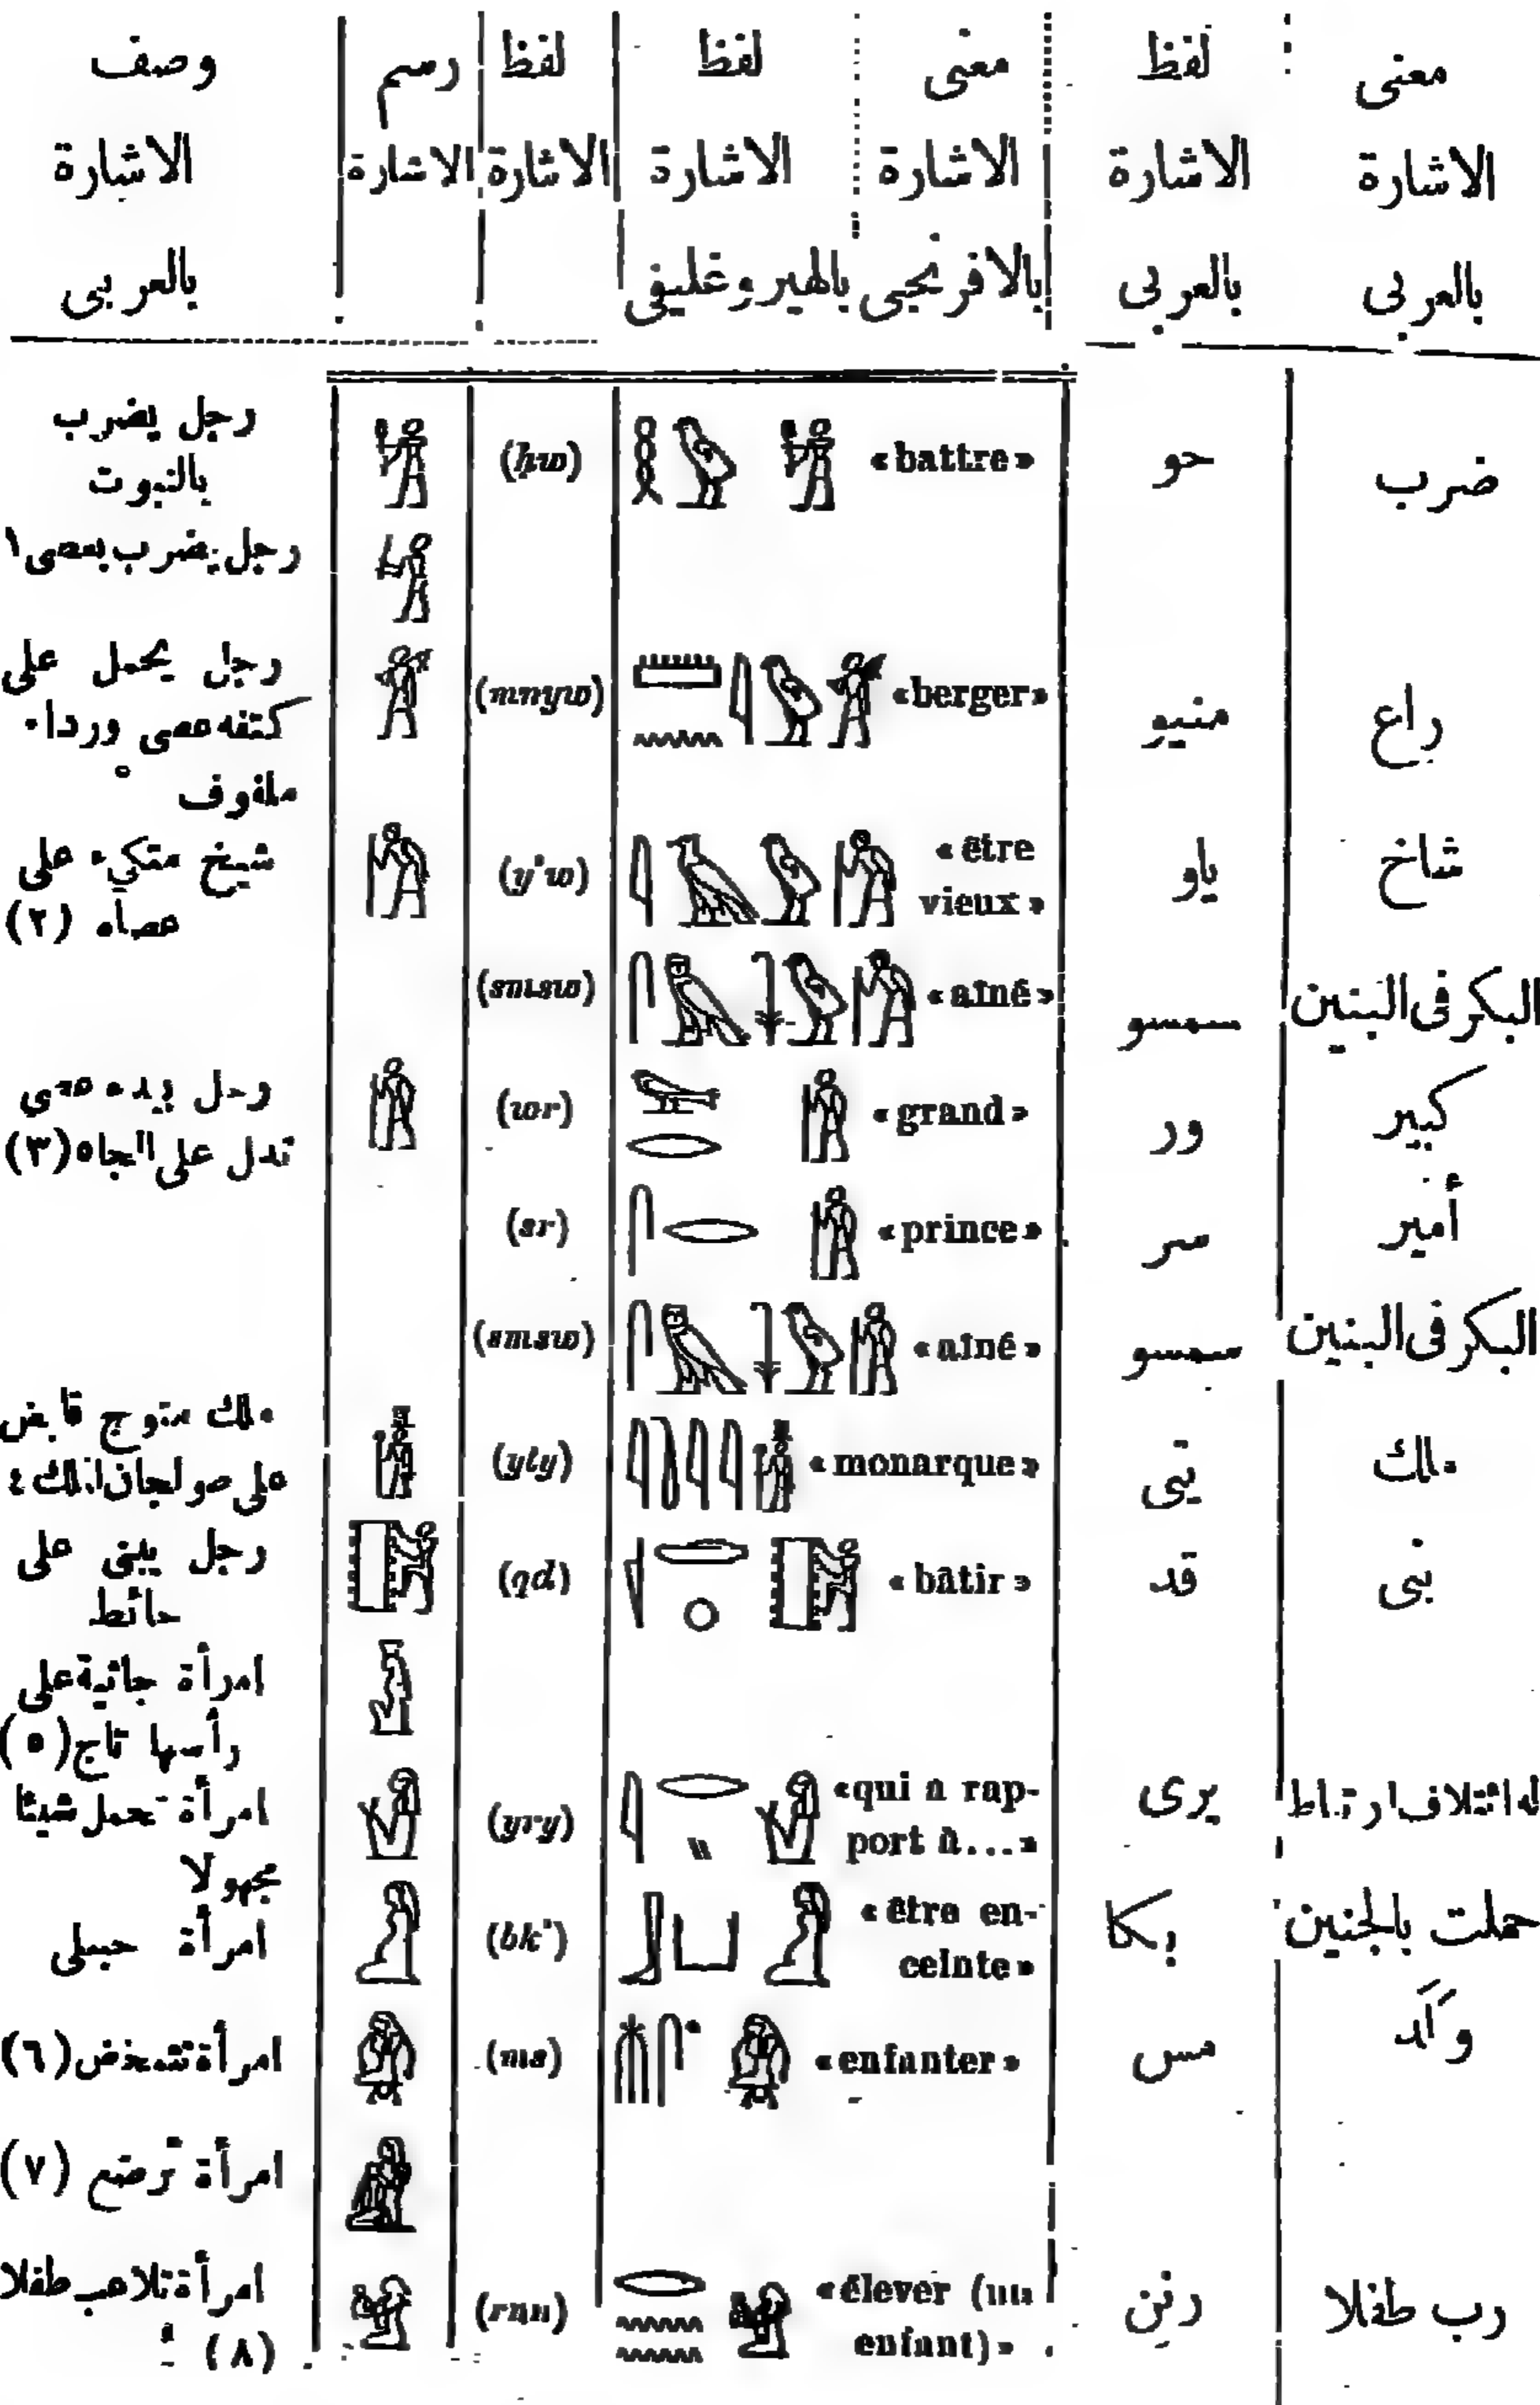 معنى لفظ معنى لفظ لفظ رسم وصف
الاشارة الاشارة الاشارة الاشارة الاشارة الاشارة الاشارة
بالعربى بالعربى بالافرنجى بالهيروغليفى بالعربى
ضرب حو «battre» (ḥw) رجل يضرب
بالنبوت
رجل يضرب بعصى ١
راع منيو «berger» (mnyw) رجل يحمل على
كتفه عصى ورداء
ملفوف
شاخ ياو «être (y'w) شيخ متكىء على
vieux» عصاه (٢)
البكر فى البنين سمسو «aîné» (smsw)
كبير ور «grand» (wr) رجل بيده عصى
تدل على الجاه (٣)
أمير سر «prince» (sr)
البكر فى البنين سمسو «aîné» (smsw)
ملك يتى «monarque» (yty) ملك متوج قابض
على صولجان الملك ٤
بنى قد «bâtir» (qd) رجل يبنى على
حائط
امرأة جاثية على
رأسها تاج (٥)
له ائتلاف ارتباط يرى «qui a rap- (yry) امرأة تحمل شيئا
port à...» مجهولا
حملت بالجنين بكا «être en- (bk') امرأة حبلى
ceinte»
وَلَد مس «enfanter» (ms) امرأة تتمخض (٦)
امرأة تُرضع (٧)
رب طفلا رنن «élever (un (rnn) امرأة تلاعب طفلا
enfant)» (٨)